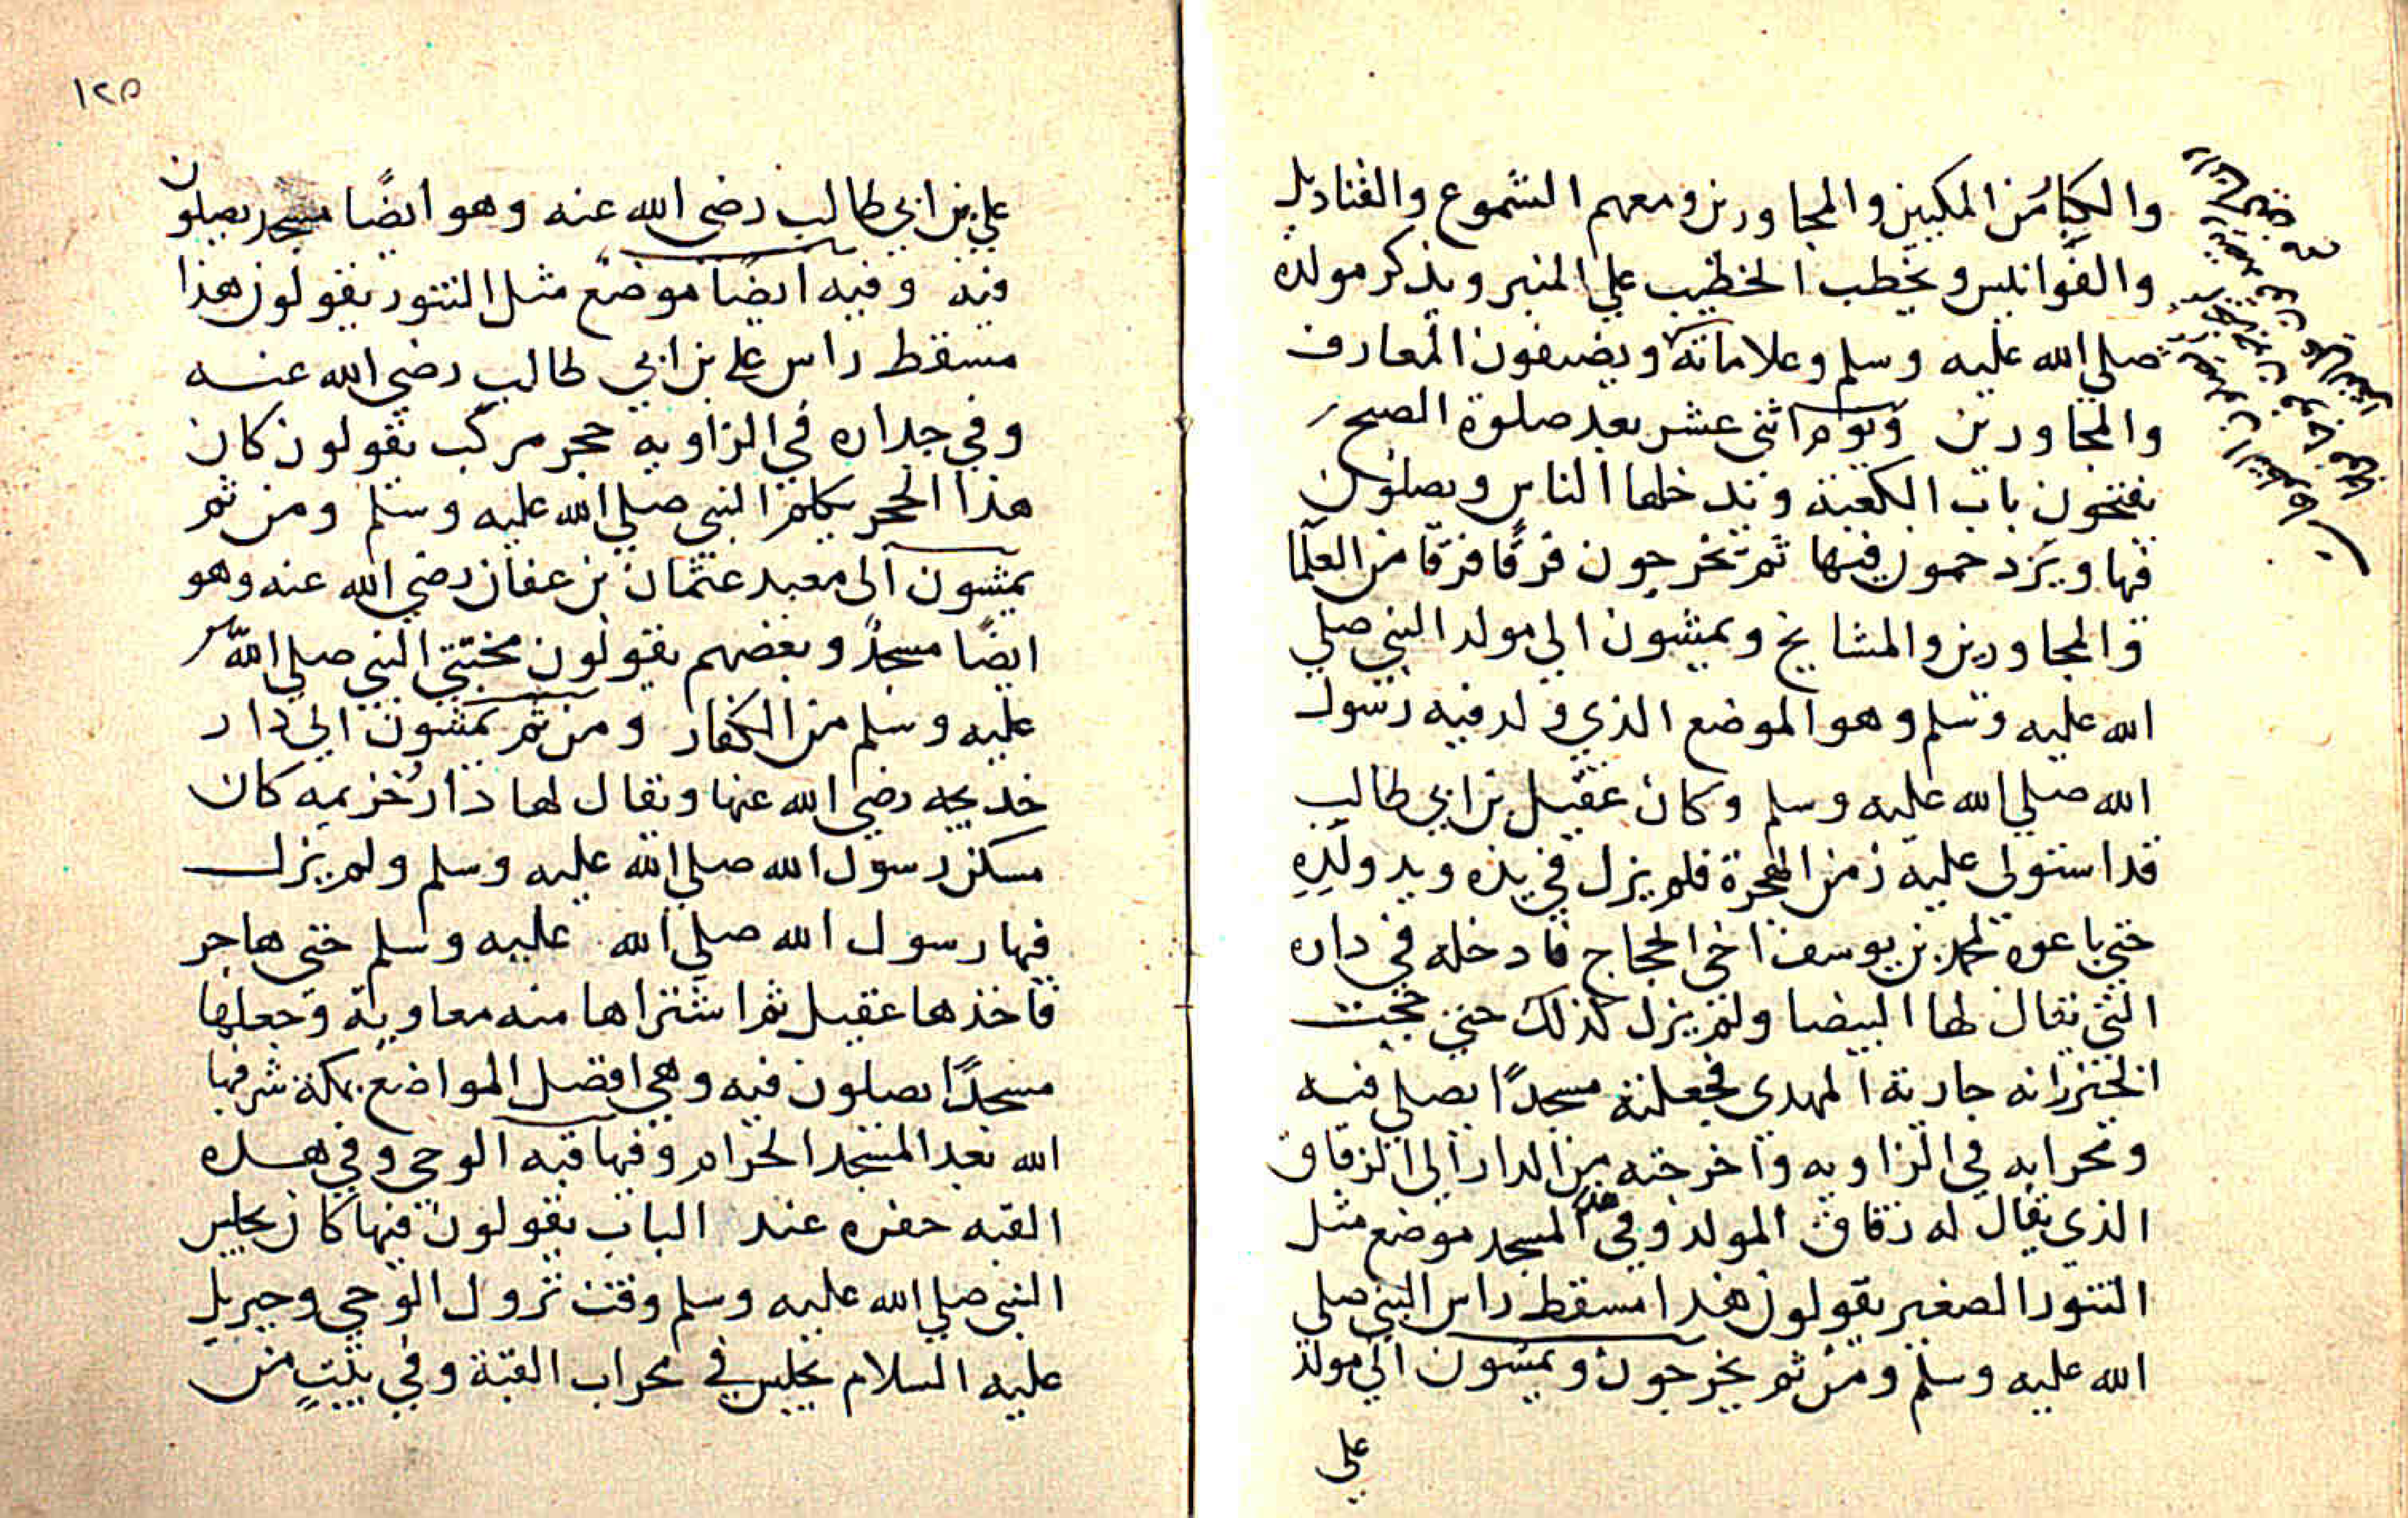 والكبائر من المكيين والمجاورين ومعهم الشموع والقناديل
والفوانيس ويخطب الخطيب علي المنبر ويذكر مولده
صلي الله عليه وسلم وعلاماته ويضيفون المعارف
والمجاورين ويوم اثنى عشر بعد صلوة الصبح
يفتحون باب الكعبة وتدخلها الناس ويصلون
فيها ويزدحمون فيها ثم يخرجون فرقًا فرقًا من العلما
والمجاورين والمشايخ ويمشون الي مولد النبي صلي
الله عليه وسلم وهو الموضع الذي ولد فيه رسول
الله صلي الله عليه وسلم وكان عقيل بن ابي طالب
قد استولى عليه زمن الهجرة فلم يزل في يده ويد ولدِهِ
حتي باعوه لمحمد بن يوسف اخي الحجاج فادخله في داره
التي يقال لها البيضا ولم يزل كذلك حتى حجت
الخيزرانه جارية المهدى فجعلته مسجدًا يصلي فيه
ومحرابه في الزاويه واخرجته من الدار الي الزقاق
الذي يقال له زقاق المولد وفي هذا المسجد موضع مثل
التنور الصغير يقولون هذا مسقط راس النبي صلي
الله عليه وسلم ومن ثم يخرجون ويمشون الي مولد
علي
١٢٥
علي بن ابي طالب رضي الله عنه وهو ايضًا مسجد يصلون
فيه وفيه ايضًا موضع مثل التنور يقولون هذا
مسقط راس علي بن ابي طالب رضي الله عنه
وفي جداره في الزاويه حجر مركب يقولون كان
هذا الحجر يكلم النبي صلي الله عليه وسلم ومن ثم
يمشون الى معبد عثمان بن عفان رضي الله عنه وهو
ايضًا مسجدً وبعضهم يقولون مختبي النبي صلي الله
عليه وسلم من الكفار ومن ثم يمشون الي دار
خديجه رضي الله عنها ويقال لها دار خزيمه كان
مسكن رسول الله صلي الله عليه وسلم ولم يزل
فيها رسول الله صلي الله عليه وسلم حتى هاجر
فاخذها عقيل ثم اشتراها منه معاوية وجعلها
مسجدًا يصلون فيه وهي افضل المواضع بمكة شرفها
الله بعد المسجد الحرام وفيها قبه الوحي وفي هذه
القبه حفره عند الباب يقولون فيها كان يجلس
النبي صلي الله عليه وسلم وقت نزول الوحي وجبريل
عليه السلام يجلس في محراب القبة وفي بيتٍ من